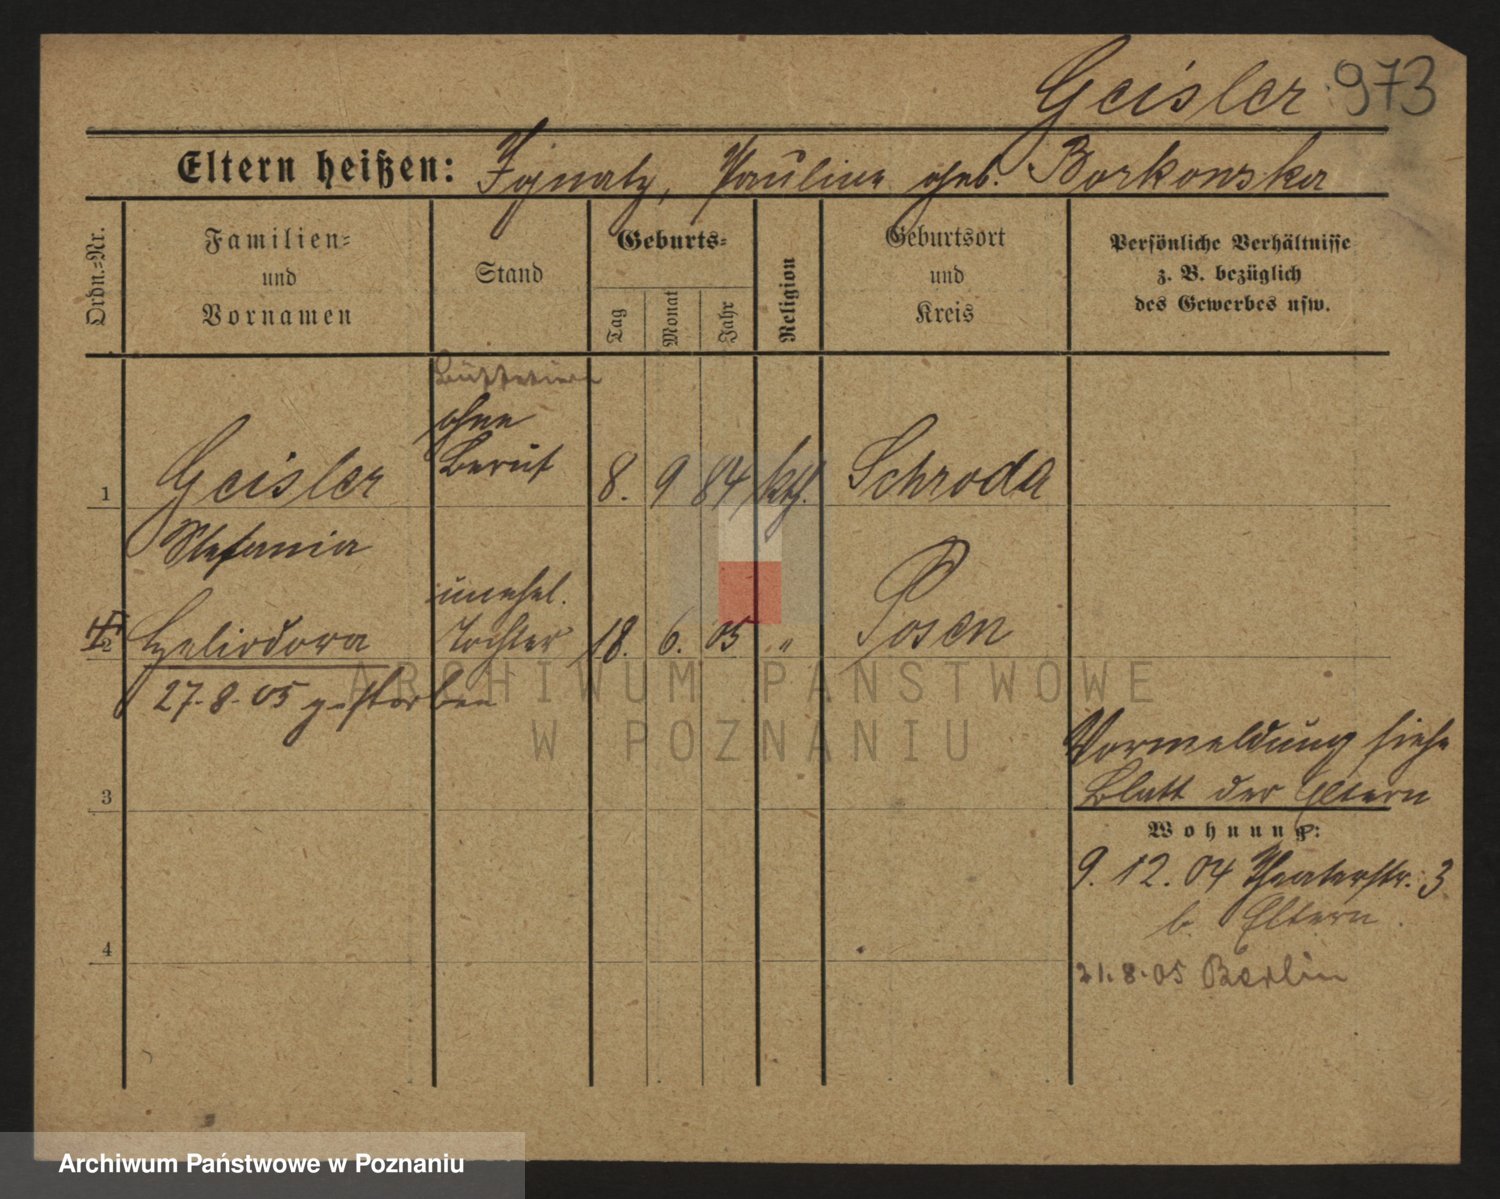 Geisler 973
Eltern heißen: Ignatz, Pauline geb. Borkowska
Ordn.=Nr.
Familien=
und
Vornamen
Stand
Geburts=
Tag
Monat
Jahr
Religion
Geburtsort
und
Kreis
Persönliche Verhältnisse
z. B. bezüglich
des Gewerbes usw.
ohne
Beruf
1 Geisler 8. 9 84 kth. Schroda
Stefania
unehel.
2 Heliodora Tochter 18. 6. 05 " Posen
27.8.05 gestorben
ARCHIWUM PAŃSTWOWE
W POZNANIU
Vormeldung siehe
Blatt der Eltern
3
Wohnung:
9. 12. 04 Theaterstr. 3
b. Eltern.
4
21.8.05 Berlin
Archiwum Państwowe w Poznaniu